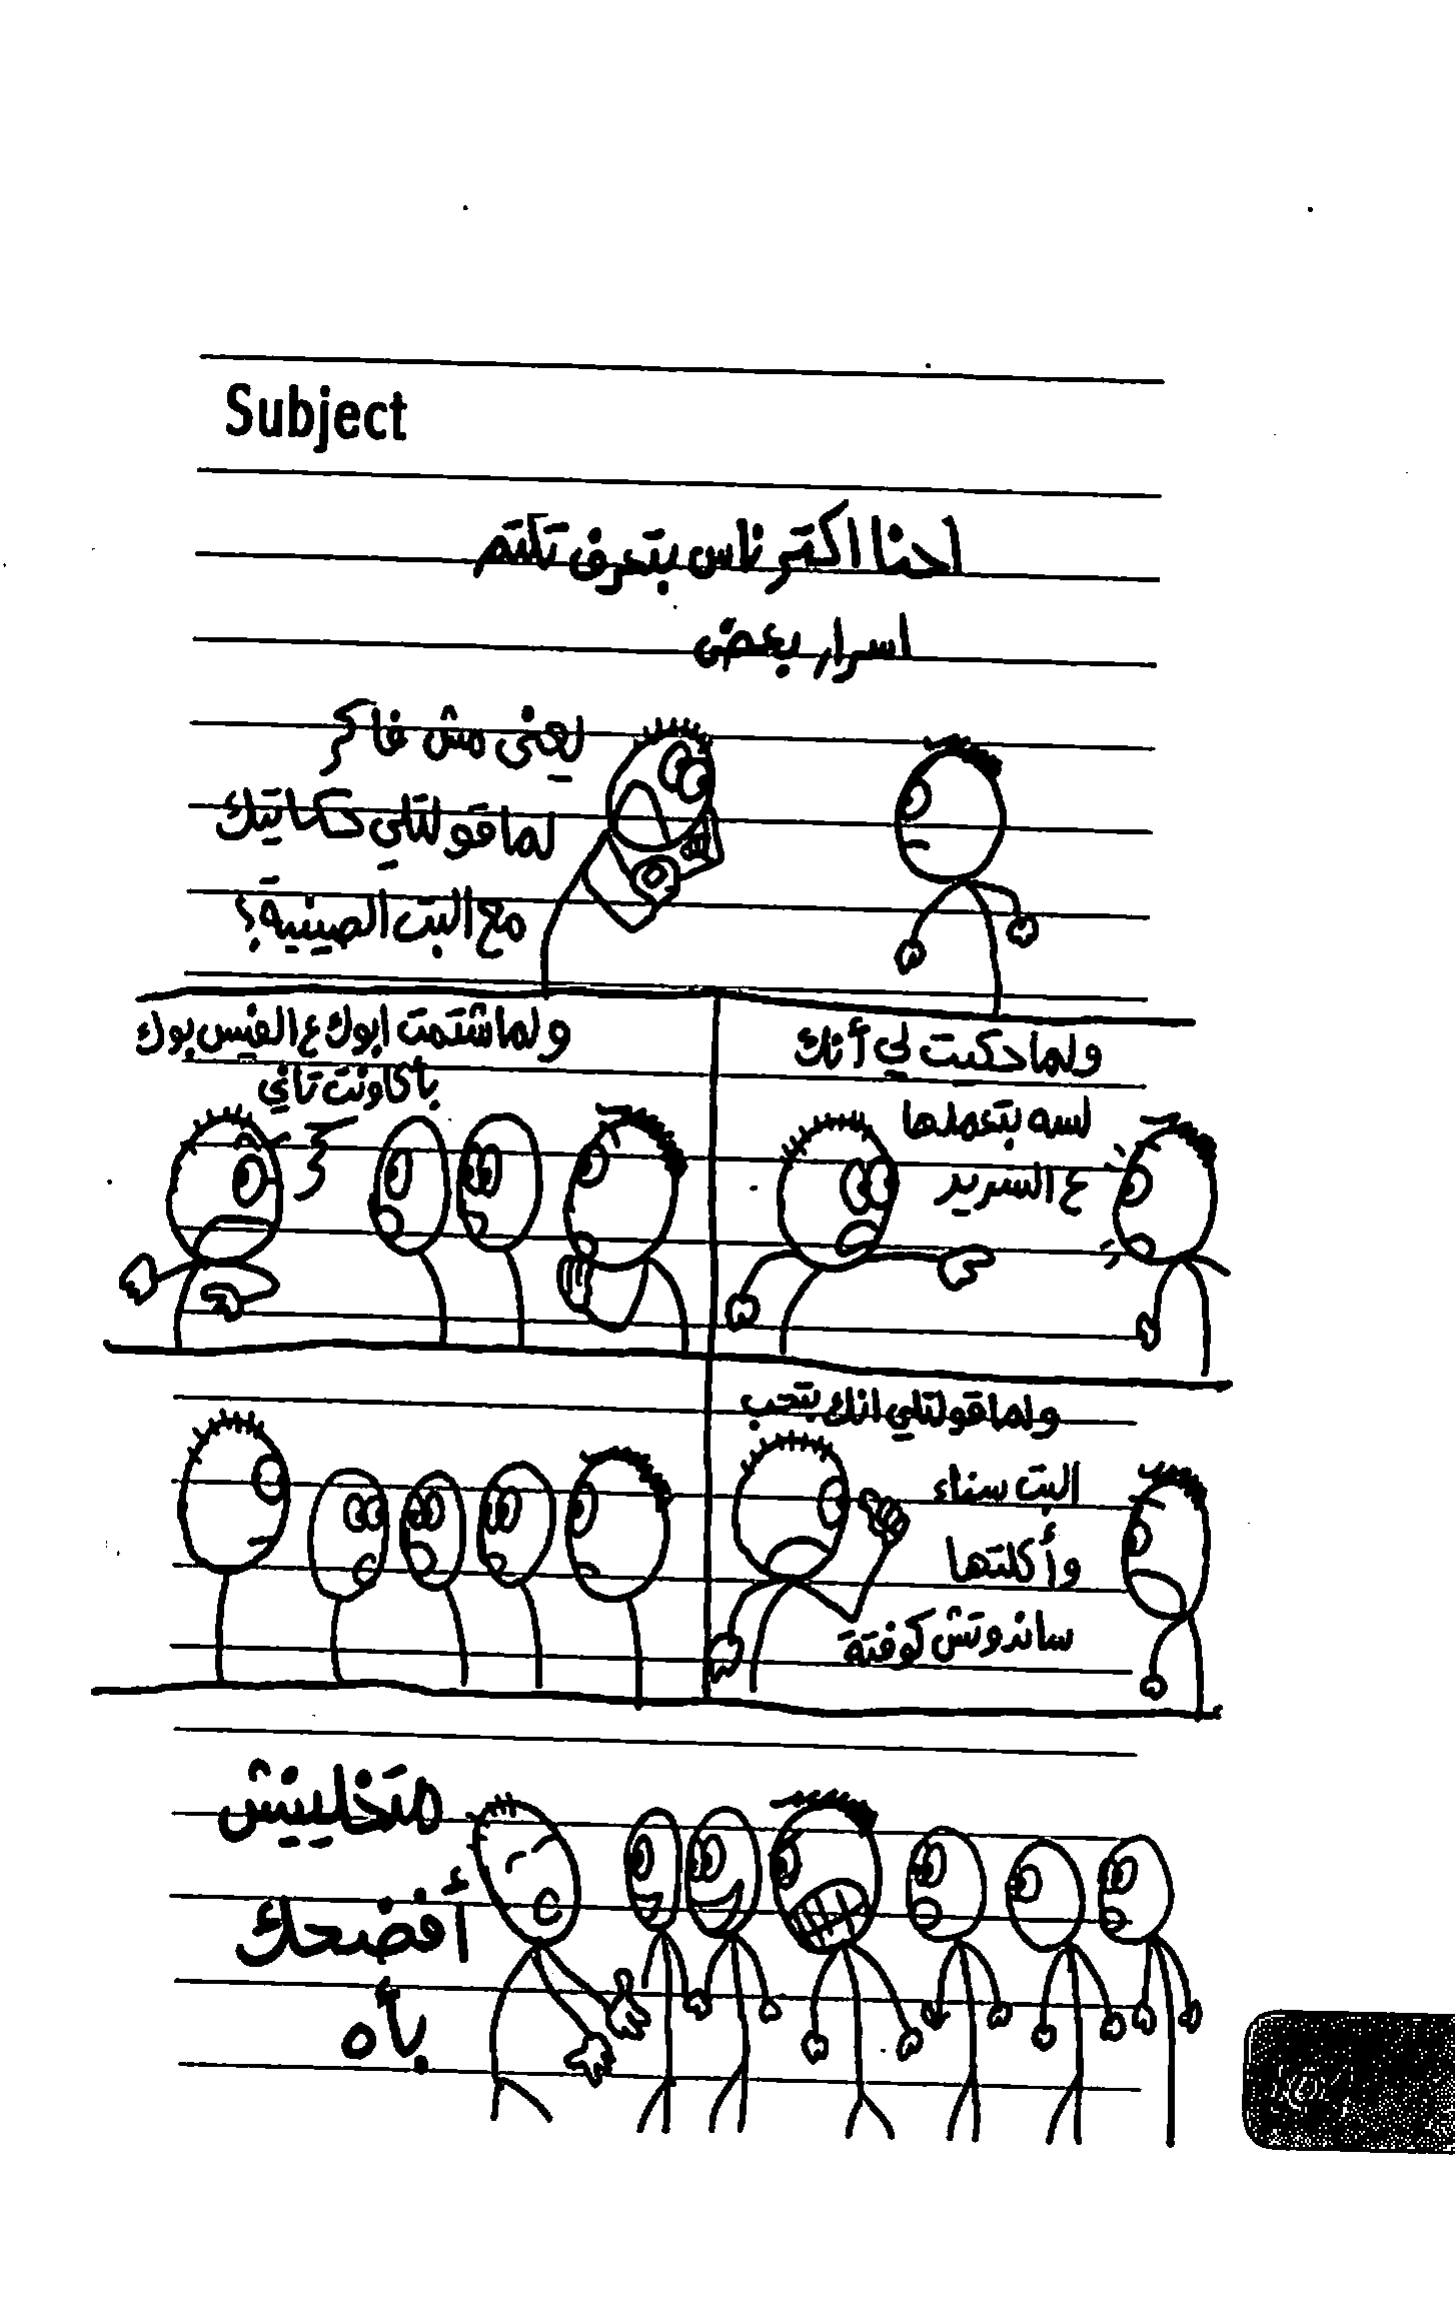 Subject
احنا اكتر ناس بتعرف تكتم
اسرار بعض
يعني مش فاكر
لما قولتلي حكايتك
مع البت الصينية؟
ولما حكيت لي أنك
لسه بتعملها
ع السرير
ولما شتمت ابوك ع الفيس بوك
بأكاونت تاني
ولما قولتلي انك بتحب
البت سناء
وأكلتها
ساندوتش كوفتة
متخلينيش
أفضحك
بأه